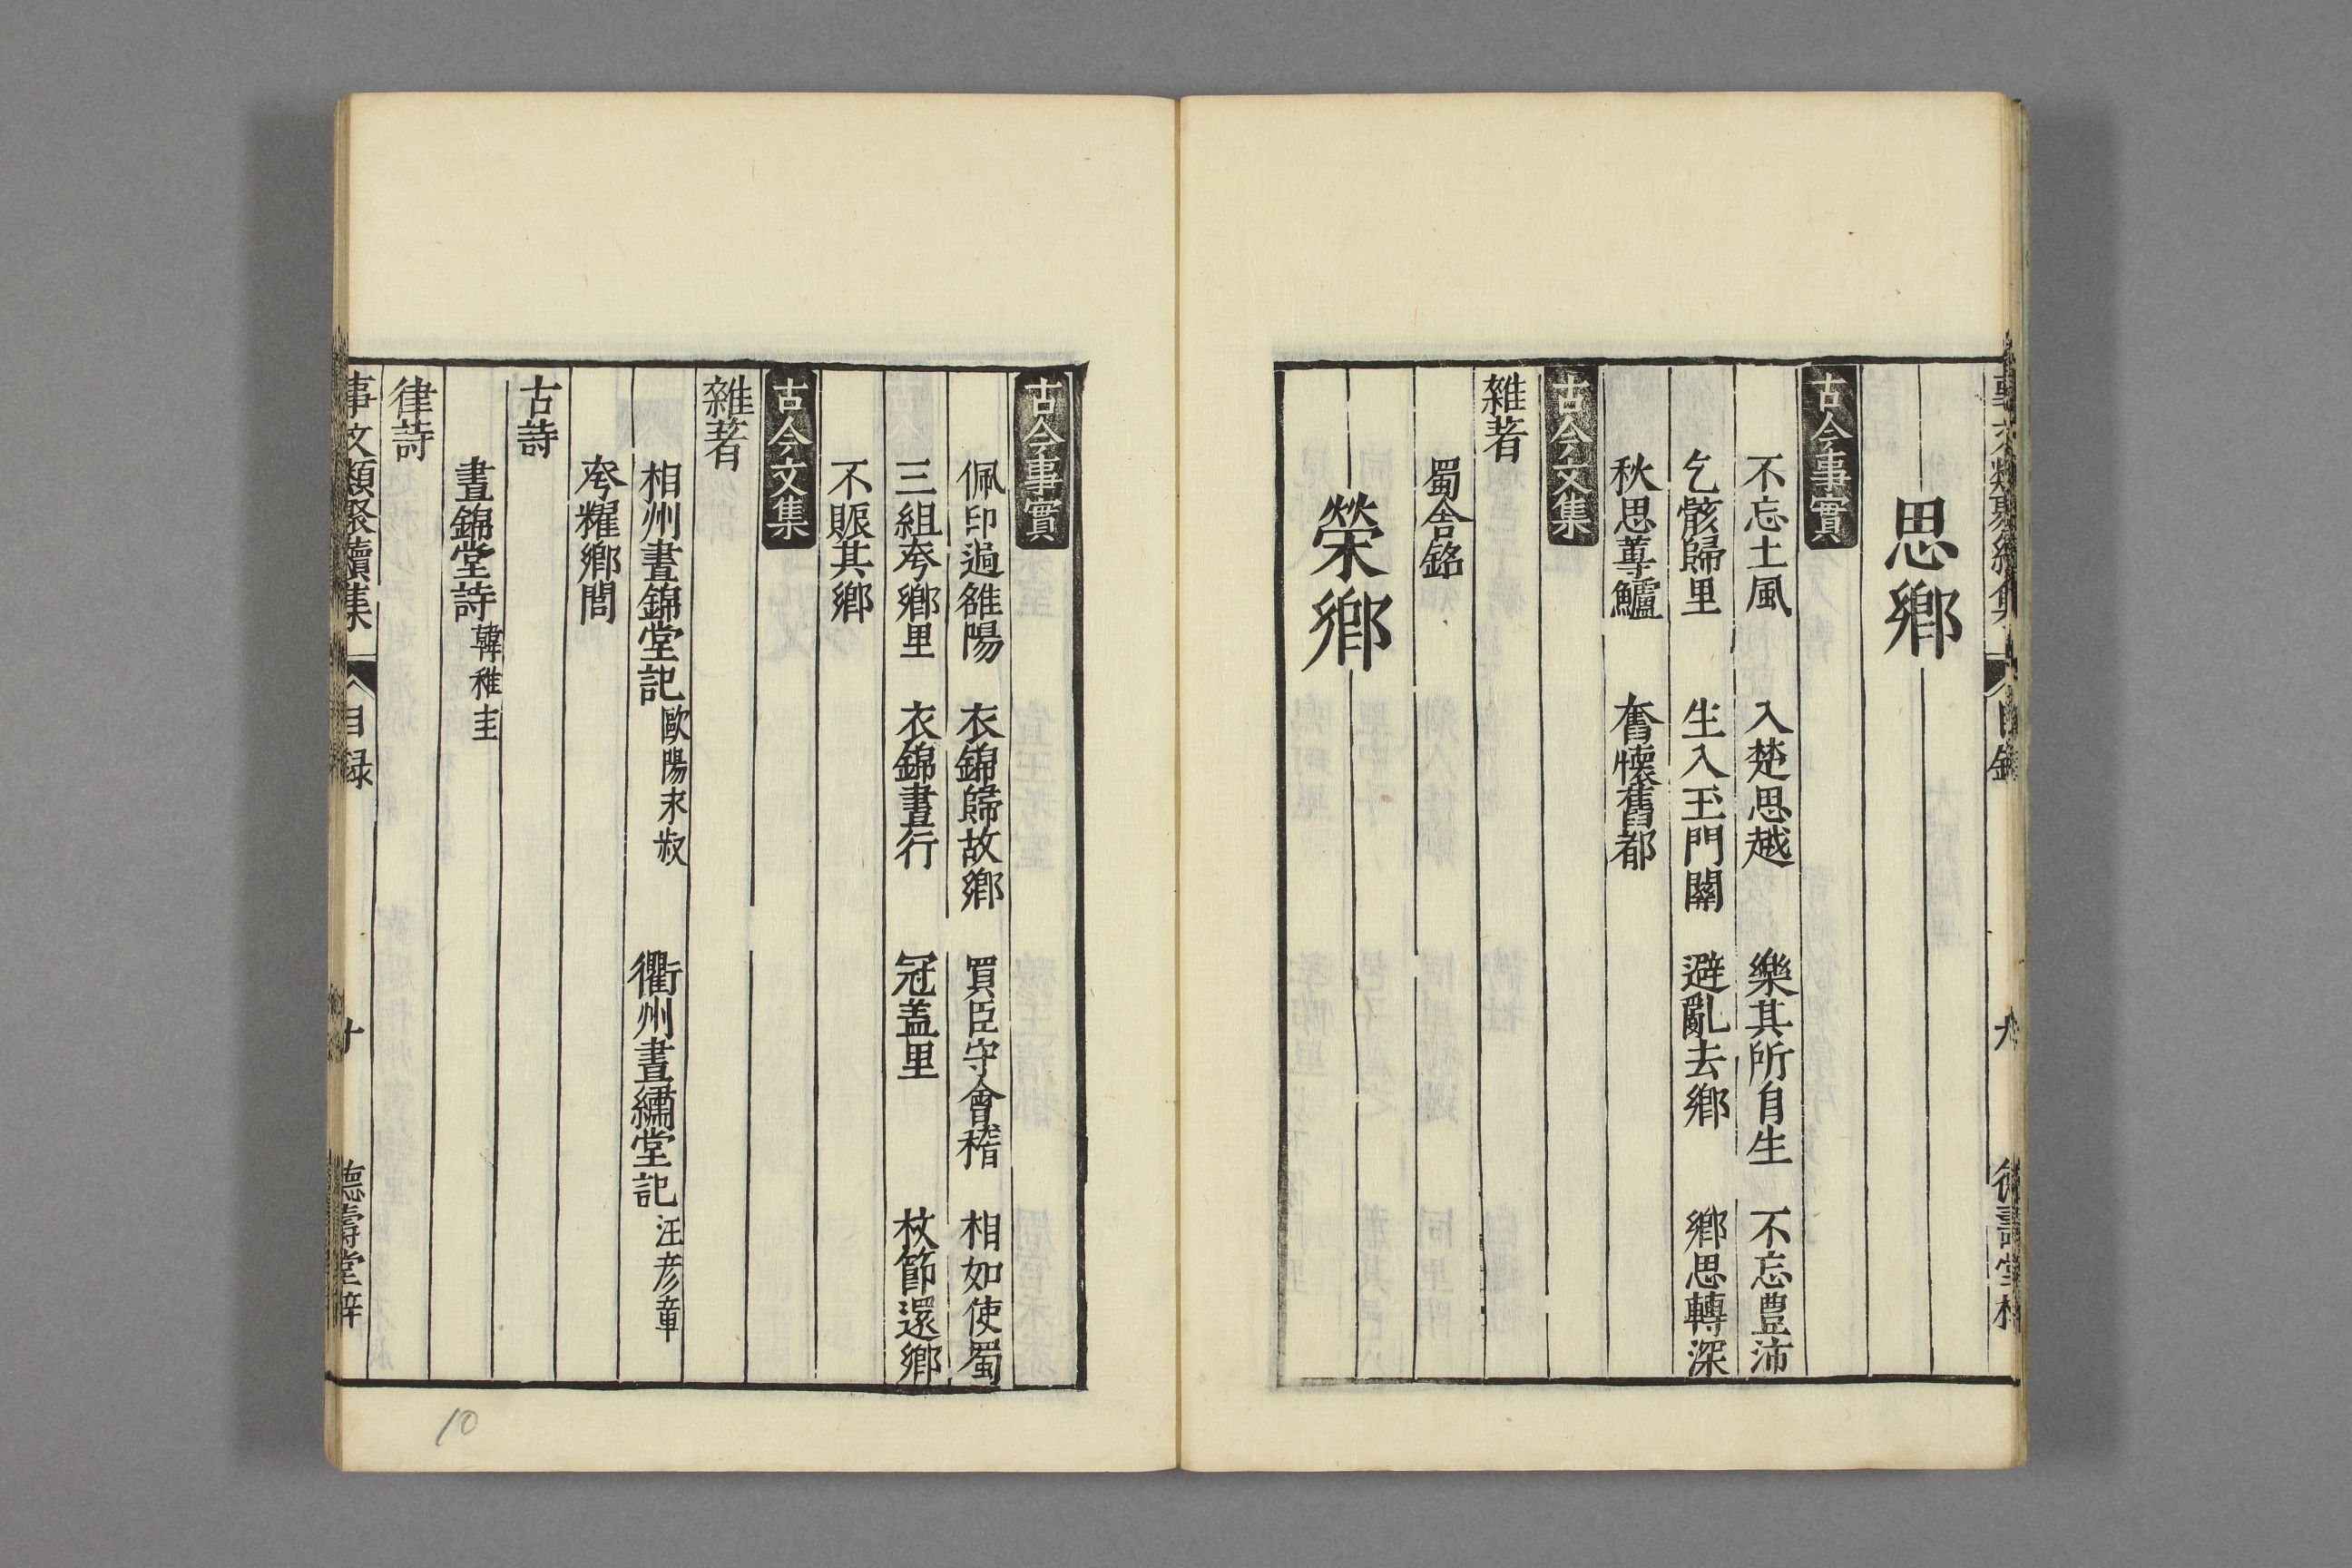 思鄉
古今事實
不忘土風 入楚思越 樂其所自生 不忘豊沛
乞骸歸里 生入玉門關 避亂去鄉 鄉思轉深
秋思蓴鱸 奮懷舊都
古今文集
雜著
蜀舍銘
榮鄉
古今事實
佩印過雒陽 衣錦歸故鄉 買臣守會稽 相如使蜀
三組夸鄉里 衣錦晝行 冠盖里 杖節還鄉
不賑其鄉
古今文集
雜著
相州晝錦堂記 歐陽永叔 衢州晝繡堂記 汪彥章
夸耀鄉閭
古詩
晝錦堂詩 韓稚圭
律詩
事文類聚續集 目録 十 德壽堂梓
10